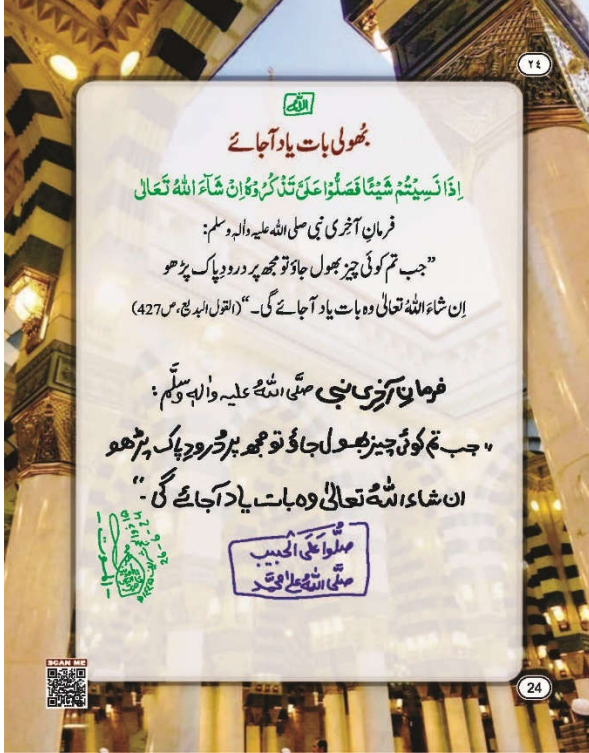 ٢٤
اللہ
بُھولی بات یاد آجائے
اِذَا نَسِيْتُمْ شَيْئًا فَصَلُّوْا عَلَیَّ تَذْكُرُوْهُ اِنْ شَآءَ اللهُ تَعَالٰى
فرمانِ آخِری نبی صلی اللہ علیہ واٰلہٖ وسلم:
”جب تم کوئی چیز بھول جاؤ تو مجھ پر درودِ پاک پڑھو
اِن شاءَ اللہُ تعالیٰ وہ بات یاد آجائے گی۔“ (القول البدیع، ص427)
فرمانِ آخِری نبی صلَّی اللہُ علیہ واٰلہٖ وسلَّم:
”جب تم کوئی چیز بھول جاؤ تو مجھ پر دُرودِ پاک پڑھو
ان شاء اللہُ تعالیٰ وہ بات یاد آجائے گی۔“
صَلُّوْا عَلَى الْحَبِيْب
صَلَّى اللهُ عَلٰى مُحَمَّد
SCAN ME
24